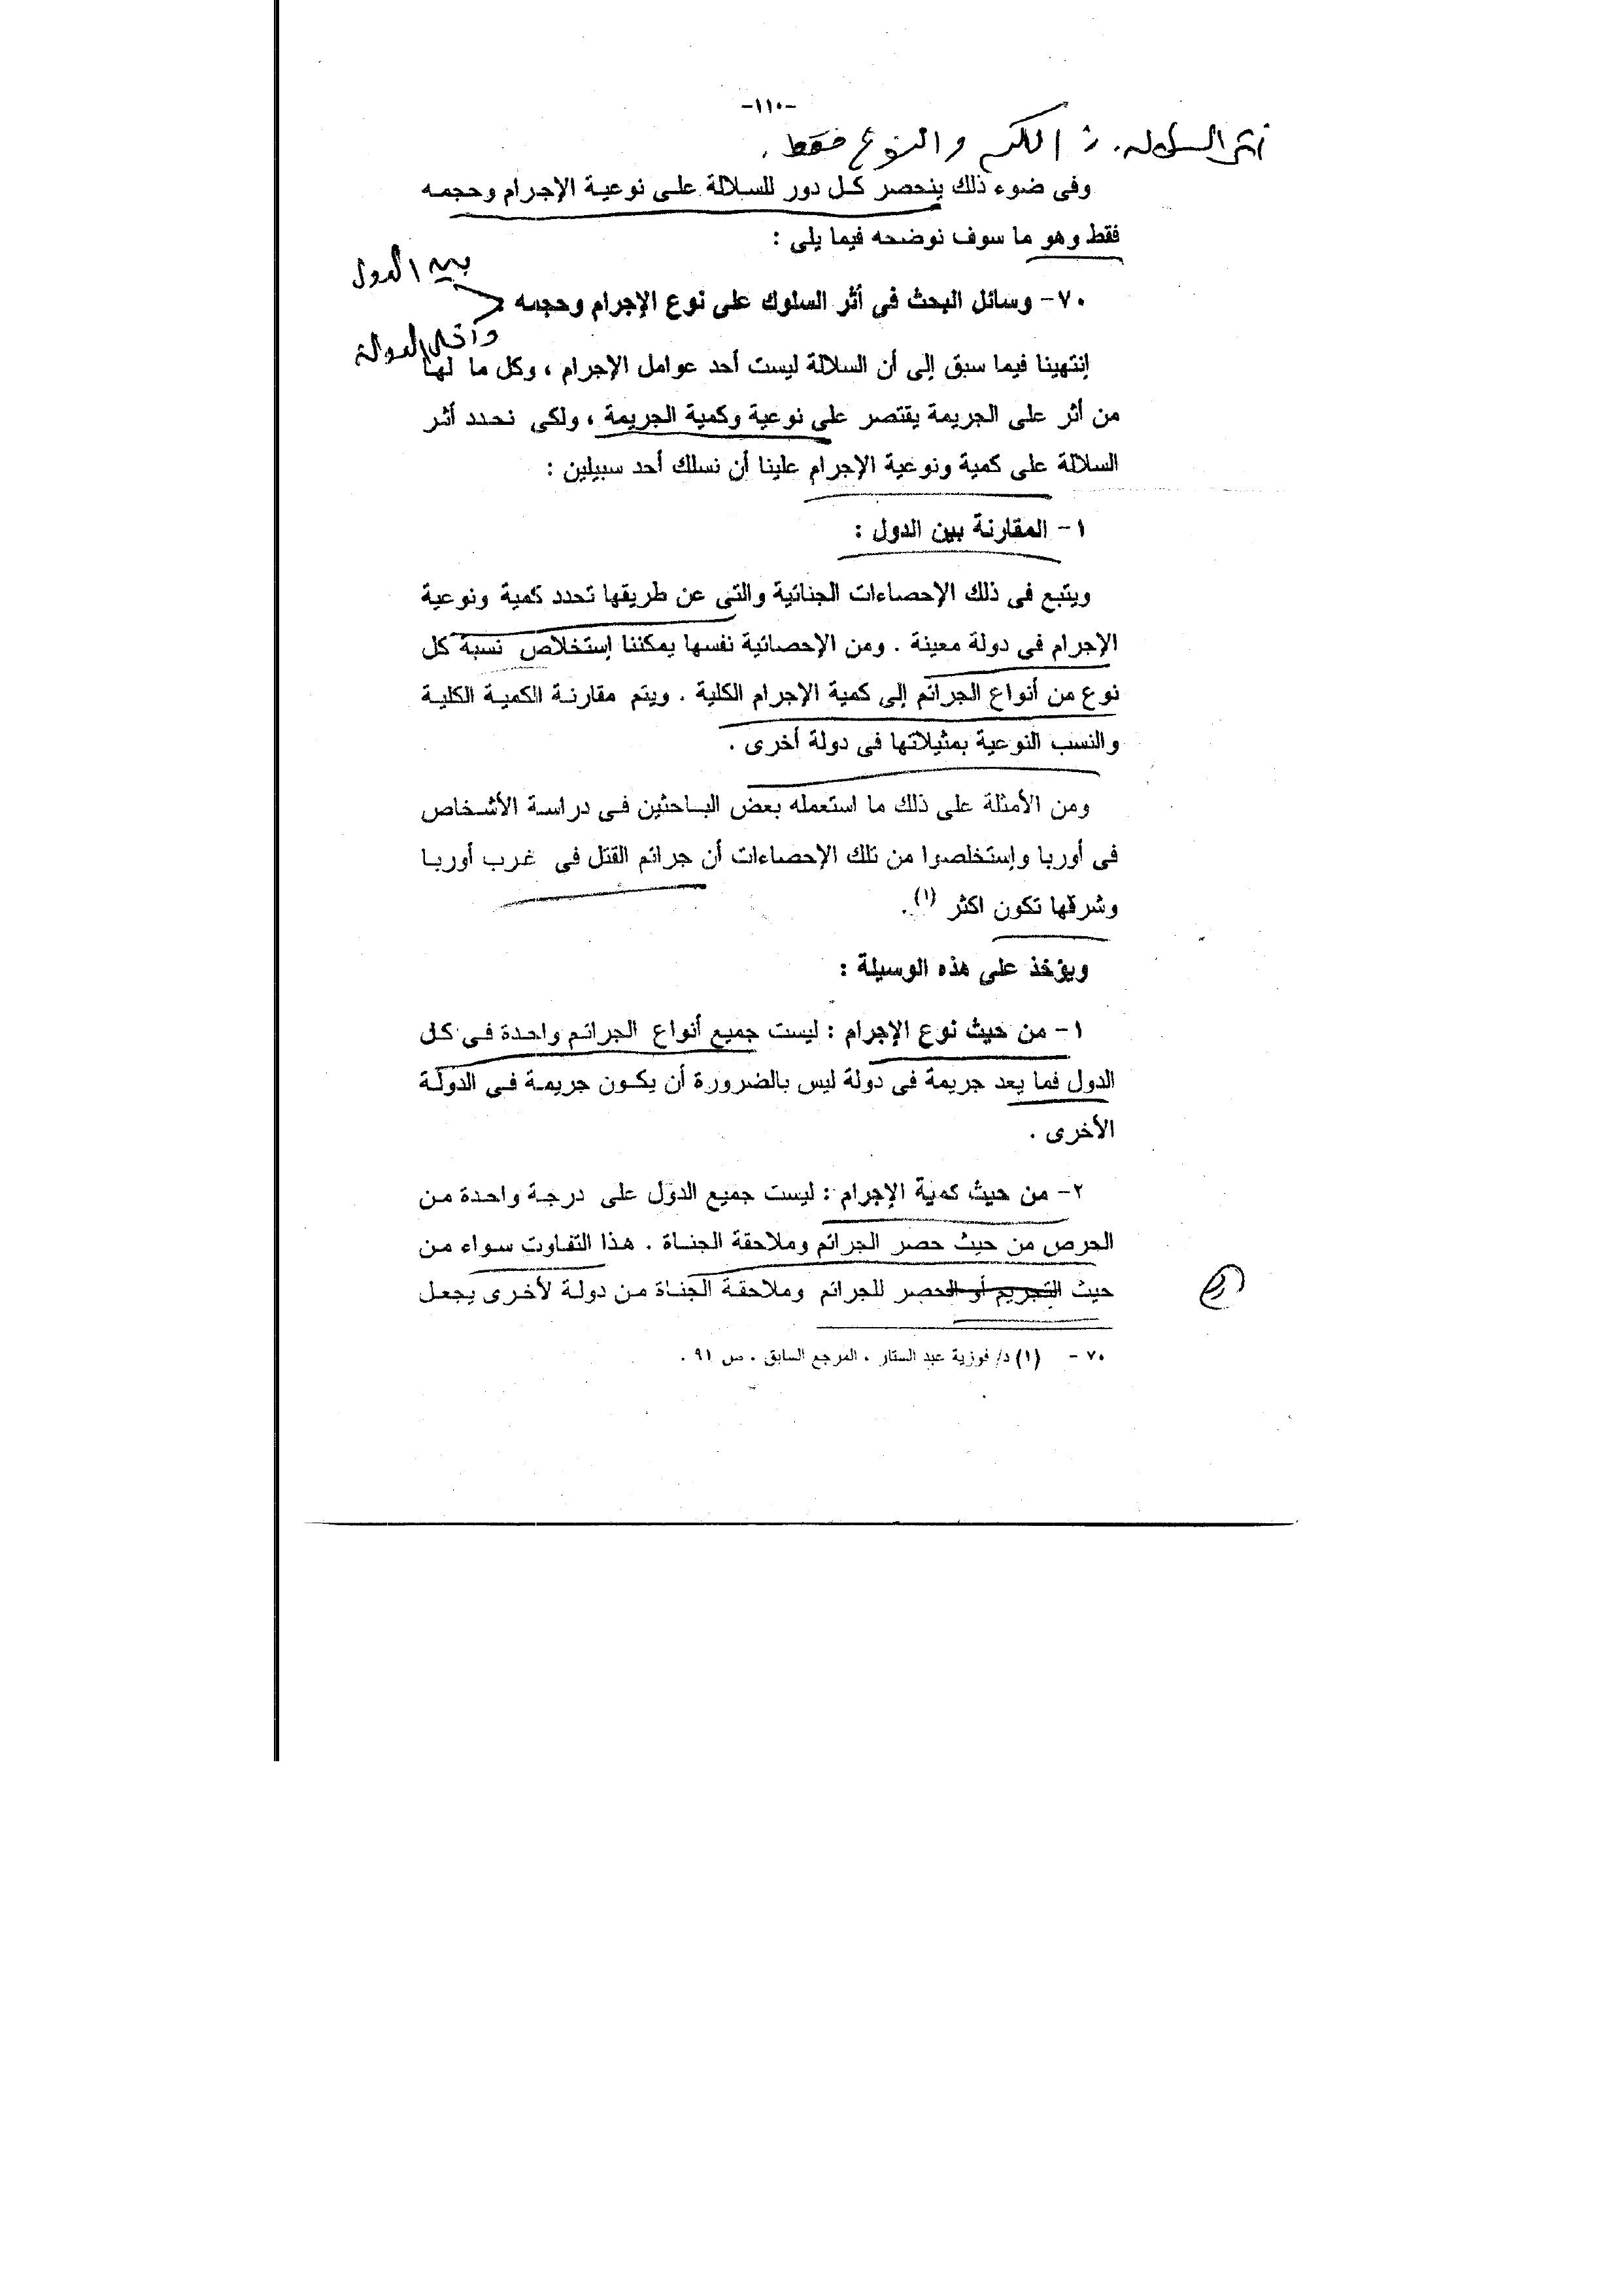 -١١٠-
أثر السلالة. في الكم والنوع فقط.
وفى ضوء ذلك ينحصر كل دور للسلالة على نوعية الإجرام وحجمه
فقط وهو ما سوف نوضحه فيما يلى :
بين الدول
٧٠- وسائل البحث فى أثر السلوك على نوع الإجرام وحجمه :
داخل الدولة
إنتهينا فيما سبق إلى أن السلالة ليست أحد عوامل الإجرام ، وكل ما لها
من أثر على الجريمة يقتصر على نوعية وكمية الجريمة ، ولكى نحدد أثر
السلالة على كمية ونوعية الإجرام علينا أن نسلك أحد سبيلين :
١- المقارنة بين الدول :
ويتبع فى ذلك الإحصاءات الجنائية والتى عن طريقها تحدد كمية ونوعية
الإجرام فى دولة معينة . ومن الإحصائية نفسها يمكننا إستخلاص نسبة كل
نوع من أنواع الجرائم إلى كمية الإجرام الكلية . ويتم مقارنة الكمية الكلية
والنسب النوعية بمثيلاتها فى دولة أخرى .
ومن الأمثلة على ذلك ما استعمله بعض الباحثين فى دراسة الأشخاص
فى أوربا وإستخلصوا من تلك الإحصاءات أن جرائم القتل فى غرب أوربا
وشرقها تكون اكثر (١).
ويؤخذ على هذه الوسيلة :
١- من حيث نوع الإجرام : ليست جميع أنواع الجرائم واحدة فى كل
الدول فما يعد جريمة فى دولة ليس بالضرورة أن يكون جريمة فى الدولة
الأخرى .
٢- من حيث كمية الإجرام : ليست جميع الدول على درجة واحدة من
الحرص من حيث حصر الجرائم وملاحقة الجناة . هذا التفاوت سواء من
حيث التجريم أو الحصر للجرائم وملاحقة الجناة من دولة لأخرى يجعل
٧٠ - (١) د/ فوزية عبد الستار ، المرجع السابق ، ص ٩١ .